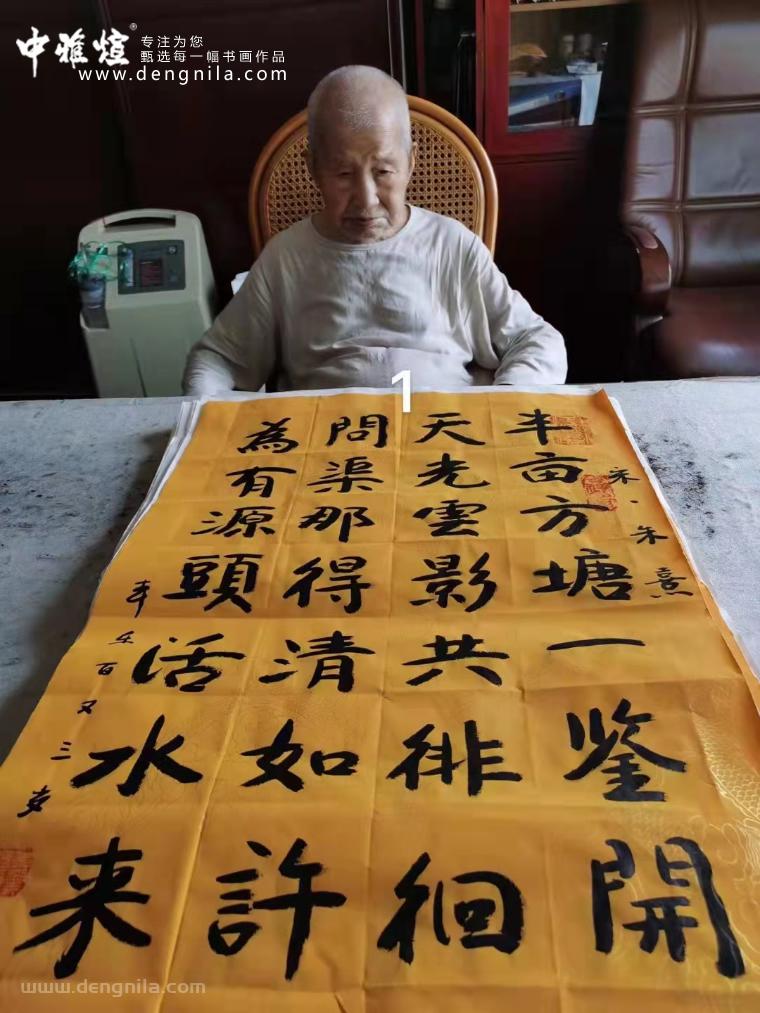 中雅煊®
专注为您
甄选每一幅书画作品
www.dengnila.com
1
宋·朱熹
半亩方塘一鉴開
天光雲影共徘徊
問渠那得清如許
為有源頭活水来
百又三
www.dengnila.com